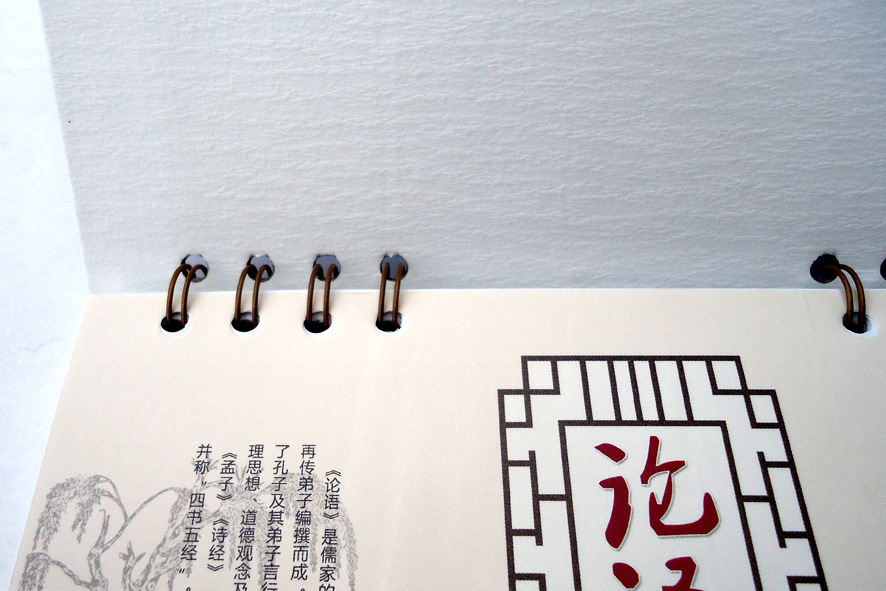 论语
《论语》是儒家的
再传弟子编撰而成。
了孔子及其弟子言行
理思想、道德观念及
《孟子》《诗经》
并称“四书五经”。